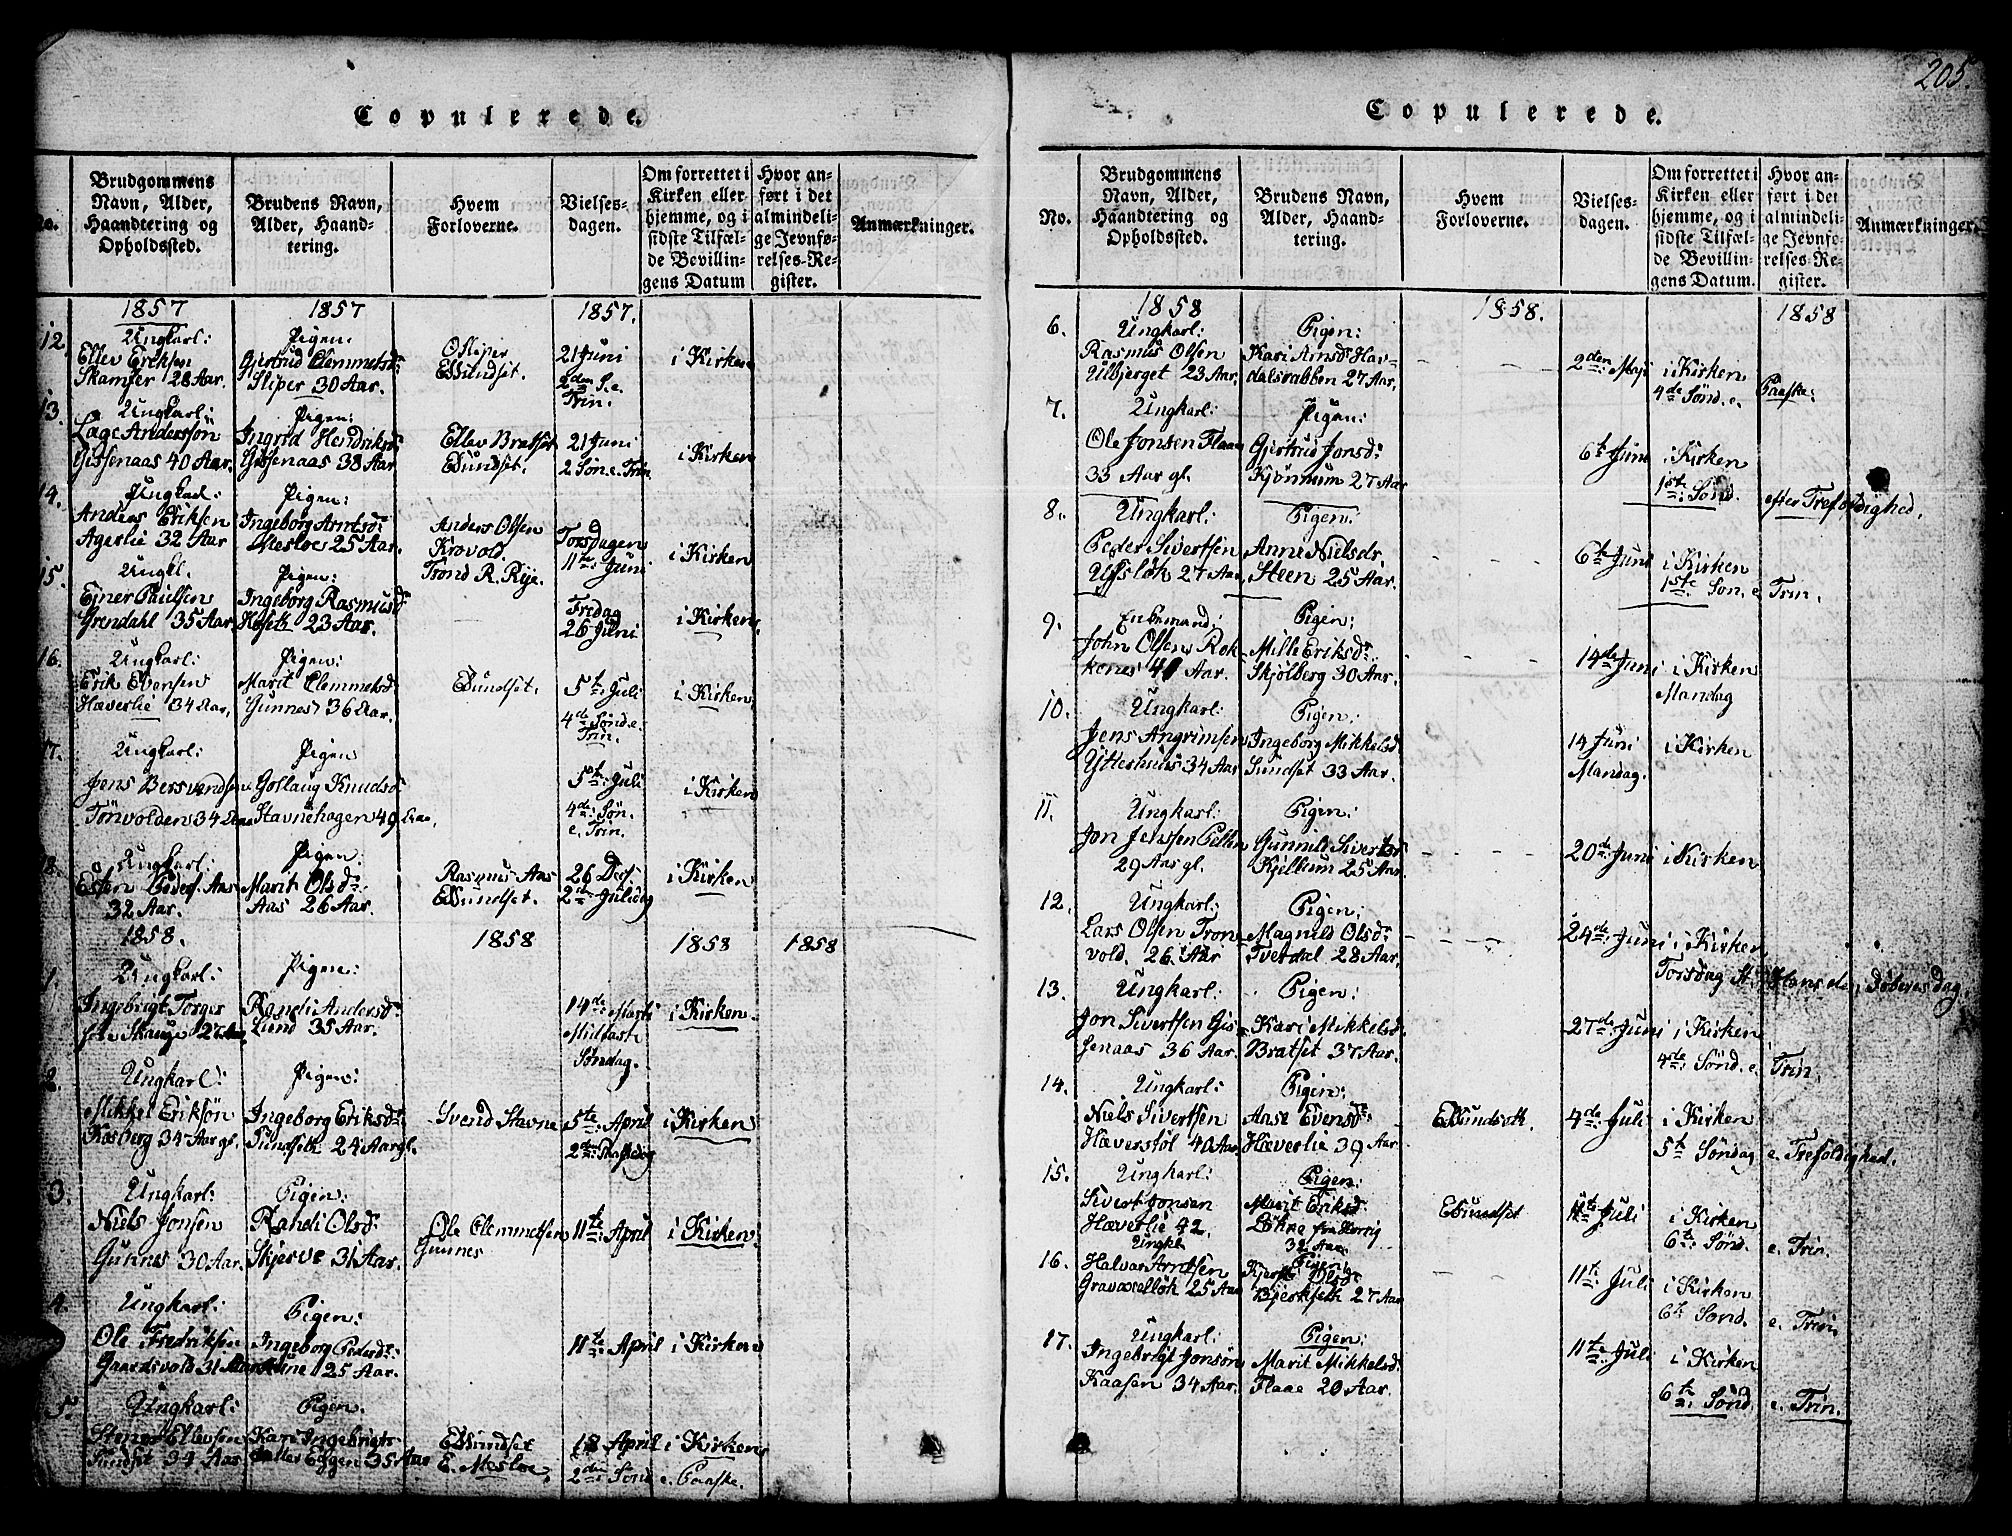 205.
Copulerede.
No.
Brudgommens Navn, Alder, Haandtering og Opholdssted.
Brudens Navn, Alder, Haandtering.
Hvem Forloverne.
Vielsesdagen.
Om forrettet i Kirken eller hjemme, og i sidste Tilfælde Bevillingens Datum
Hvor anført i det almindelige Jevnførelses-Register.
Anmærkninger.
1857 1857 1857.
12. Ungkarl: Pigen:
Ellev Eriksen Gjertrud Clemmetsdr: OStiper 21 Juni i Kirken
Skamfer 28 Aar. Stiper 30 Aar. ESundset. 2den S. e.
Trin.
13. Ungkarl: Pigen:
Lage Andersson Ingrid Hendriksd: Ellev Bratset 21 Juni i Kirken
Gissenaas 40 Aar. Gissenaas 38 Aar ESundset. 2 Søn. e. Trin.
14. Ungkarl: Pigen:
Anders Eriksen Ingeborg Arntsd: Anders Olsen Torsdagen
Agerlie 32 Aar Mesloe 25 Aar. Krovold. 11te Juni i Kirken
15. Ungkl. Pigen: Trond R. Rye.
Ejner Paulsen Ingeborg Rasmusd: Fredag
Grendahl 35 Aar. Hoseth 23 Aar. 26 Juni i Kirken
16. Ungkarl: Pigen:
Erik Evensen Marit Clemmetsd: ESundset. 5te Juli i Kirken
Hæverlie 34 Aar, Gunnes 36 Aar. 4de Sønd. e.
Trin.
17. Ungkarl: Pigen
Jens Bersvendsen Gollaug Knudsd: 5te Juli i Kirken
Tørvolden 34 Aar Stavnehagen 49 Aar. 4de Søn.
e. Trin.
18. Ungkarl: Pigen:
Esten Peders. Aas Marit Olsd: Rasmus Aas 26 Decf. i Kirken
32 Aar. Aas 26 Aar. ESundset. 2den Juledag
1858. 1858 1858 1858
1. Ungkarl: Pigen:
Ingebrigt Torger Randi Andersd: 14de Marts i Kirken.
sen Skauge 27 Aar Lund 35 Aar. Midfaste
Søndag.
2. Ungkarl: Pigen:
Mikkel Eriksøn Ingeborg Eriksd: Svend Stavne 5te April i Kirken
Kosberg 34 Aar gl. Sundseth 24 Aar gl. 2den Paaskedag
3. Ungkarl: Pigen:
Niels Jonsen Randi Olsd: Ole Clemmetsen 11te April i Kirken
Gunnes 30 Aar. Skjerve 31 Aar. Gunnes
4. Ungkarl: Pigen:
Ole Fredriksen Ingeborg Pedersd: 11te April i Kirken
Gaardsvold 31 Aar 25 Aar.
5. Ungkarl: Pigen.
Ellevsen Kari Ingebrigts ESundset 18 April i Kirken
Sundset 34 Aar. Eggen 35 Aar E. Mesloe. 2den Sønd e. Paaske.
Copulerede.
No.
Brudgommens Navn, Alder, Haandtering og Opholdssted.
Brudens Navn, Alder, Haandtering.
Hvem Forloverne.
Vielsesdagen.
Om forrettet i Kirken eller hjemme, og i sidste Tilfælde Bevillingens Datum.
Hvor anført i det almindelige Jevnførelses-Register.
Anmærkninger.
1858 1858. 1858
6. Ungkarl: Pigen:
Rasmus Olsen Kari Arnsd: Hav- 2den Maji i Kirken
Ulbjerget 23 Aar, dalsrabben 27 Aar. 4de Sønd. e. Paaske:
7. Ungkarl: Pigen:
Ole Jonsen Flaae Gjertrud Jonsd: 6te Juni i Kirken
33 Aar gl. Kjønnum 27 Aar 1ste Sønd. efter Trefoldighed.
8. Ungkarl: Pigen:
Peder Sivertsen Anne Nielsdr. 6te Juni i Kirken
Ufsløk 27 Aar, Steen 25 Aar. 1ste Søn. e. Trin.
9. Enkemand: Pigen:
John Olsen Rok- Mille Eriksd: 14de Juni i Kirken
kenes 40 Aar. Skjølberg 30 Aar. Mandag
10. Ungkarl: Pigen:
Jens Angrimsen Ingeborg Mikkelsd: 14 Juni i Kirken
Ytterhuus 34 Aar Sundset 33 Aar. Mandag.
11. Ungkarl: Pigen:
Jon Jenssen Gunnild Sivertsd: 20de Juni i Kirken
29 Aar gl. Kjellum 25 Aar.
12. Ungkarl: Pigen:
Lars Olsen Tron- Magnild Olsd: 24de Juni i Kirken
vold. 26. Aar Tverdal 28 Aar. Torsdag St. Hans
13. Ungkarl: Pigen:
Jon Sivertsen Gis- Kari Mikkelsd: 27de Juni i Kirken
senaas 36 Aar. Bratset 37 Aar. 4de Sønd. e. Trin.
14. Ungkarl: Pigen:
Niels Sivertsen Aase Evensd: ESundseth. 4de Juli i Kirken
Hæverstøl 40 Aar Hæverlie 39 Aar. 5te Søndag e. Trefoldighed.
15. Ungkarl: Pigen:
Sivert Jonsen Marit Eriksd: ESundset 11te Juli i Kirken
Hæverlie 42. Løkne fra Horrig 6te Sønd. e. Trin.
Ungkl. 32 Aar.
16. Halvar Arntsen Pigen: Kjersti Olsd: 11te Juli i Kirken
Gravaselløk 25 Aar Bjerkseth 27 Aar 6te Sønd. e. Trin.
17. Ungkarl: Pigen:
Ingebrigt Jonsøn Marit Mikkelsd: 11te Juli i Kirken
Kaasen 34 Aar. Flaae 20 Aar. 6te Sønd. e. Trin.